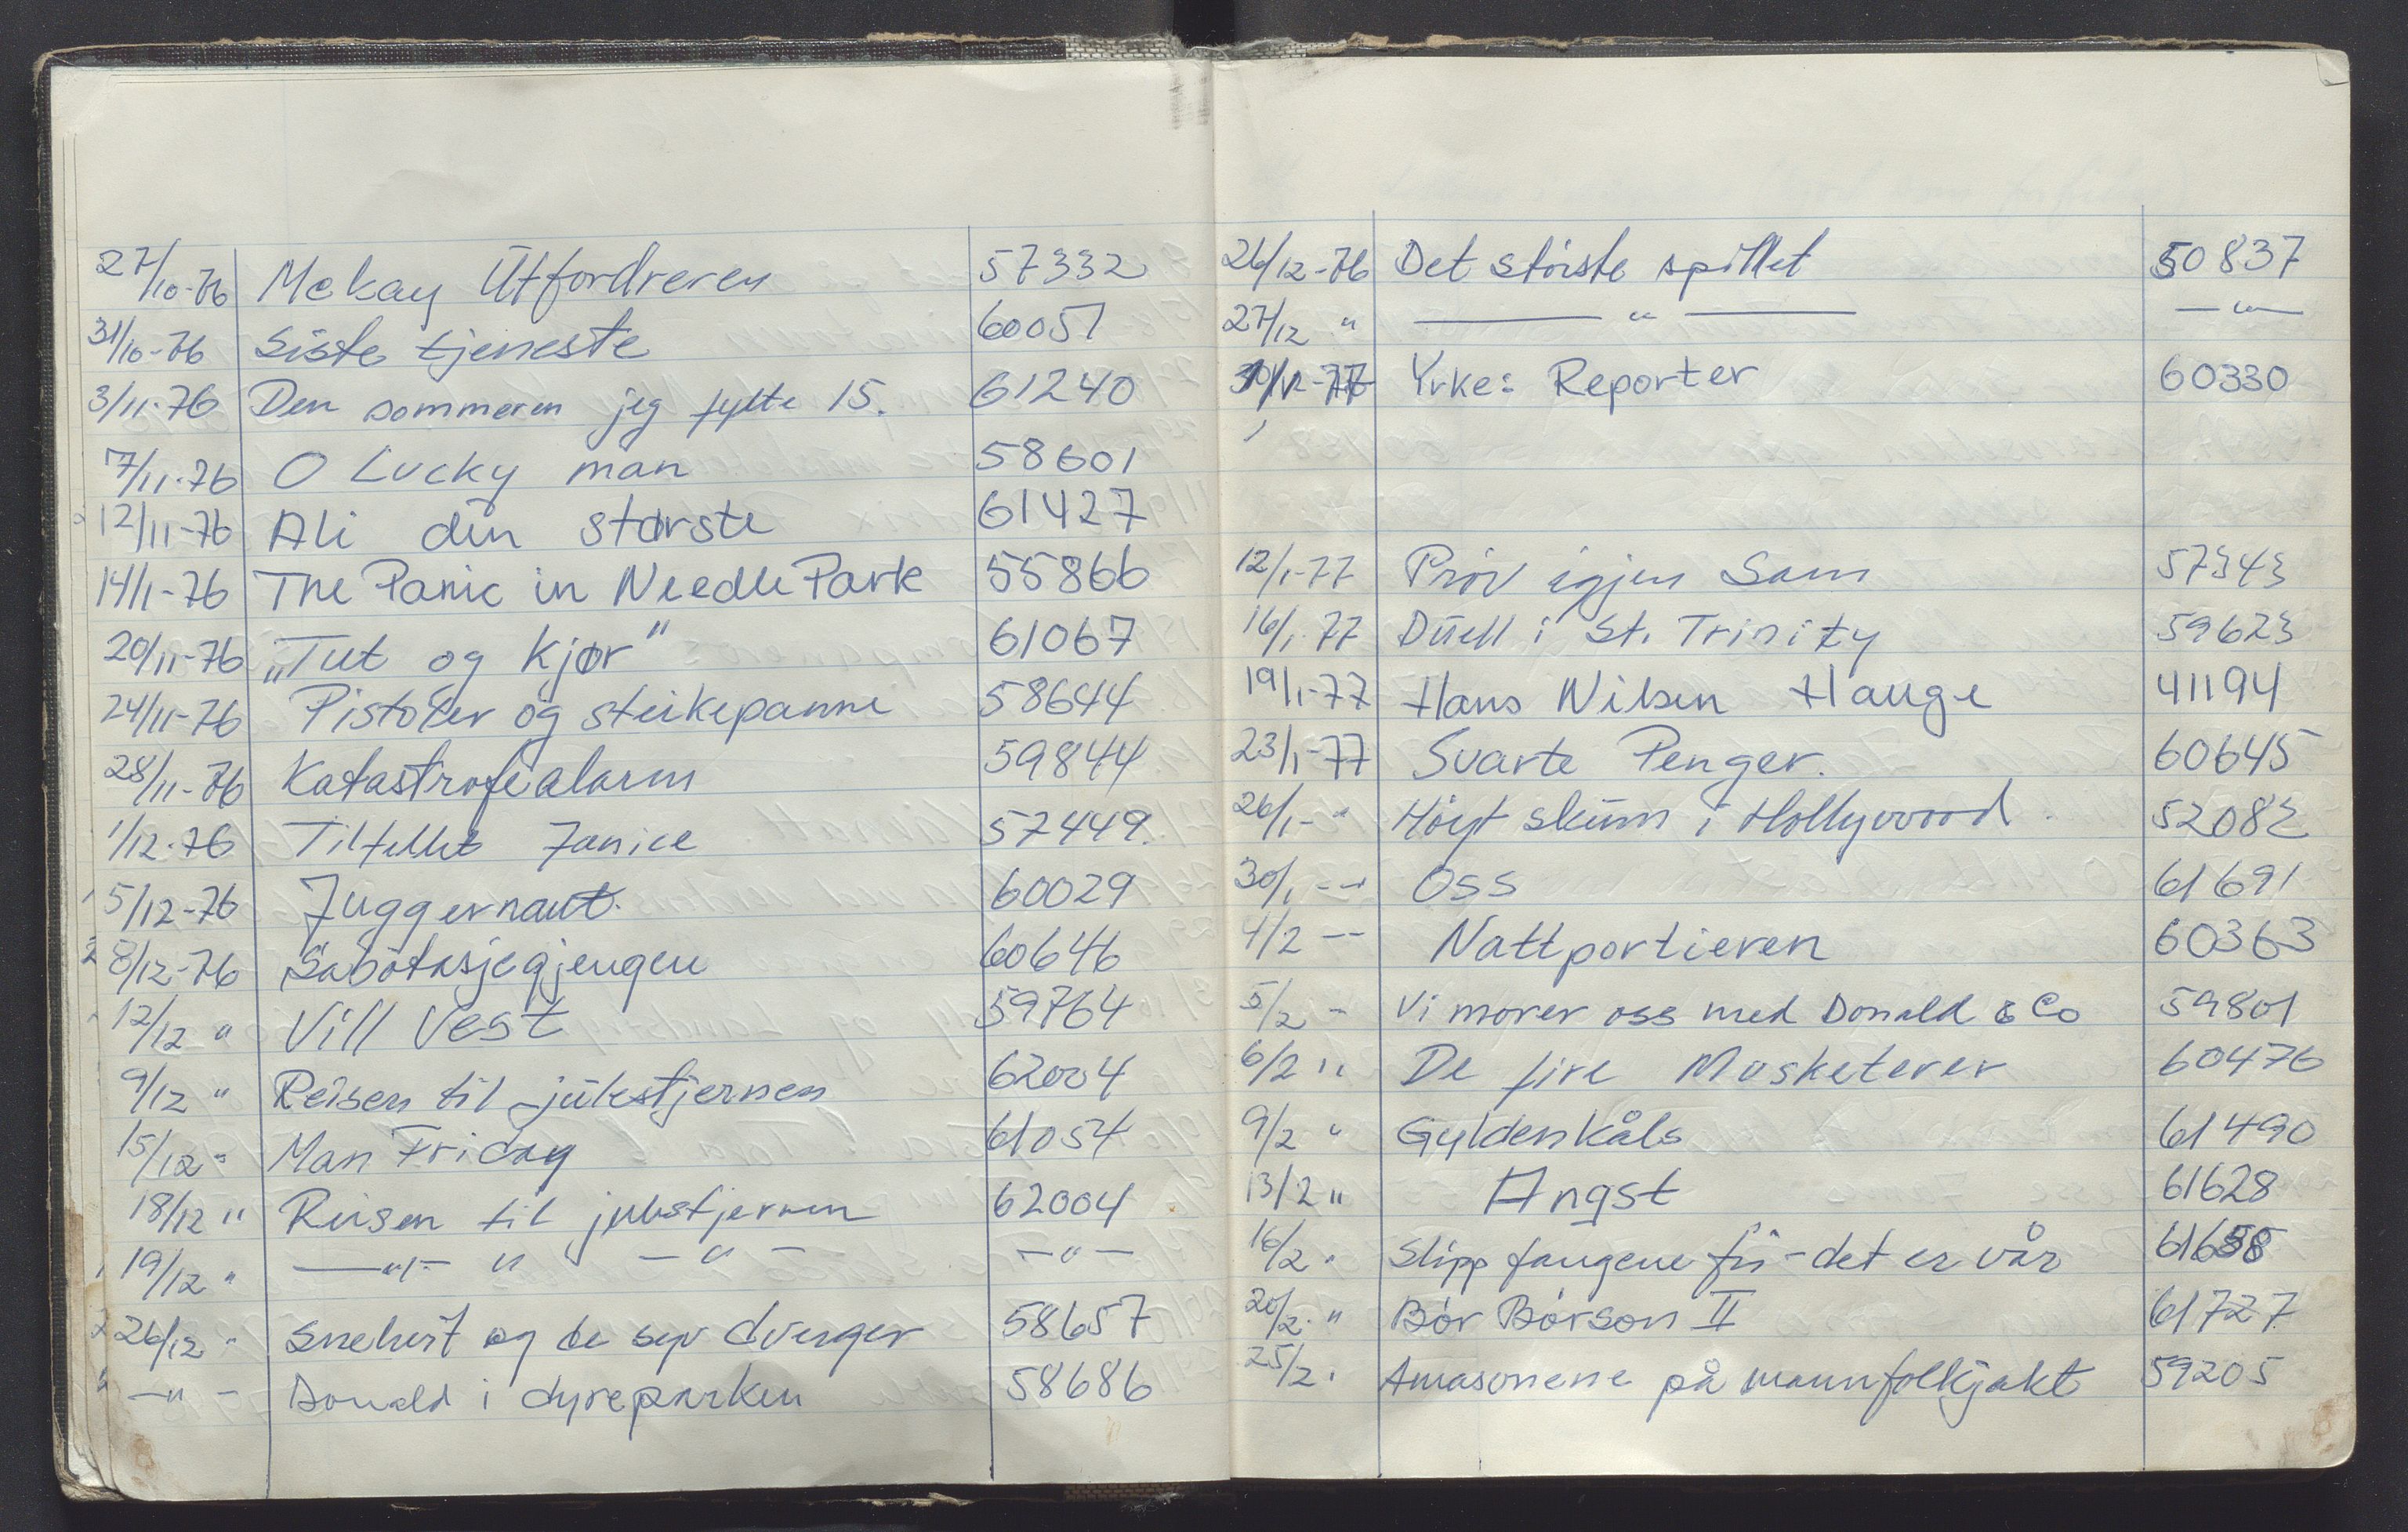 27/10-76 Mekay Utfordreren 57332
31/10-76 Siste tjeneste 60051
3/11-76 Den sommeren jeg fylte 15. 61240
7/11-76 O Lucky man 58601
12/11-76 Ali den største 61427
14/11-76 The Panic in Needle Park 55866
20/11-76 „Tut og kjør" 61067
24/11-76 Pistoler og steikepanne 58644
28/11-76 Katastrofealarm 59844
1/12-76 Tilfellet Janice 57449.
5/12-76 Juggernaut. 60029
8/12-76 Sabotasjegjengen 60646
12/12 " Vill Vest 59764
9/12 " Reisen til julestjernen 62004
15/12 " Man Friday 61054
18/12 " Reisen til julestjernen 62004
19/12 " —"— " —"— —"—
26/12 " Snehvit og de syv dverger 58657
—"— Donald i dyreparken 58686
26/12-76 Det største spillet 50837
27/12 " —— " —— —"—
Yrke: Reporter 60330
12/1-77 Prøv igjen Sam 57343
16/1-77 Duell i St. Trinity 59623
19/1-77 Hans Nilsen Hauge 41194
23/1-77 Svarte Penger. 60645
26/1-" Høyt skum i Hollywood. 52083
30/1 -- Oss 61691
4/2 -- Nattportieren 60363
5/2 - Vi morer oss med Donald & Co 59801
6/2 " De fire Musketerer 60476
9/2 " Gyldenkåls 61490
13/2 " Angst 61628
16/2 " Slipp fangene fri - det er vår
20/2 " Bør Børson II 61727
25/2 " Amasonene på mannfolkjakt 59205